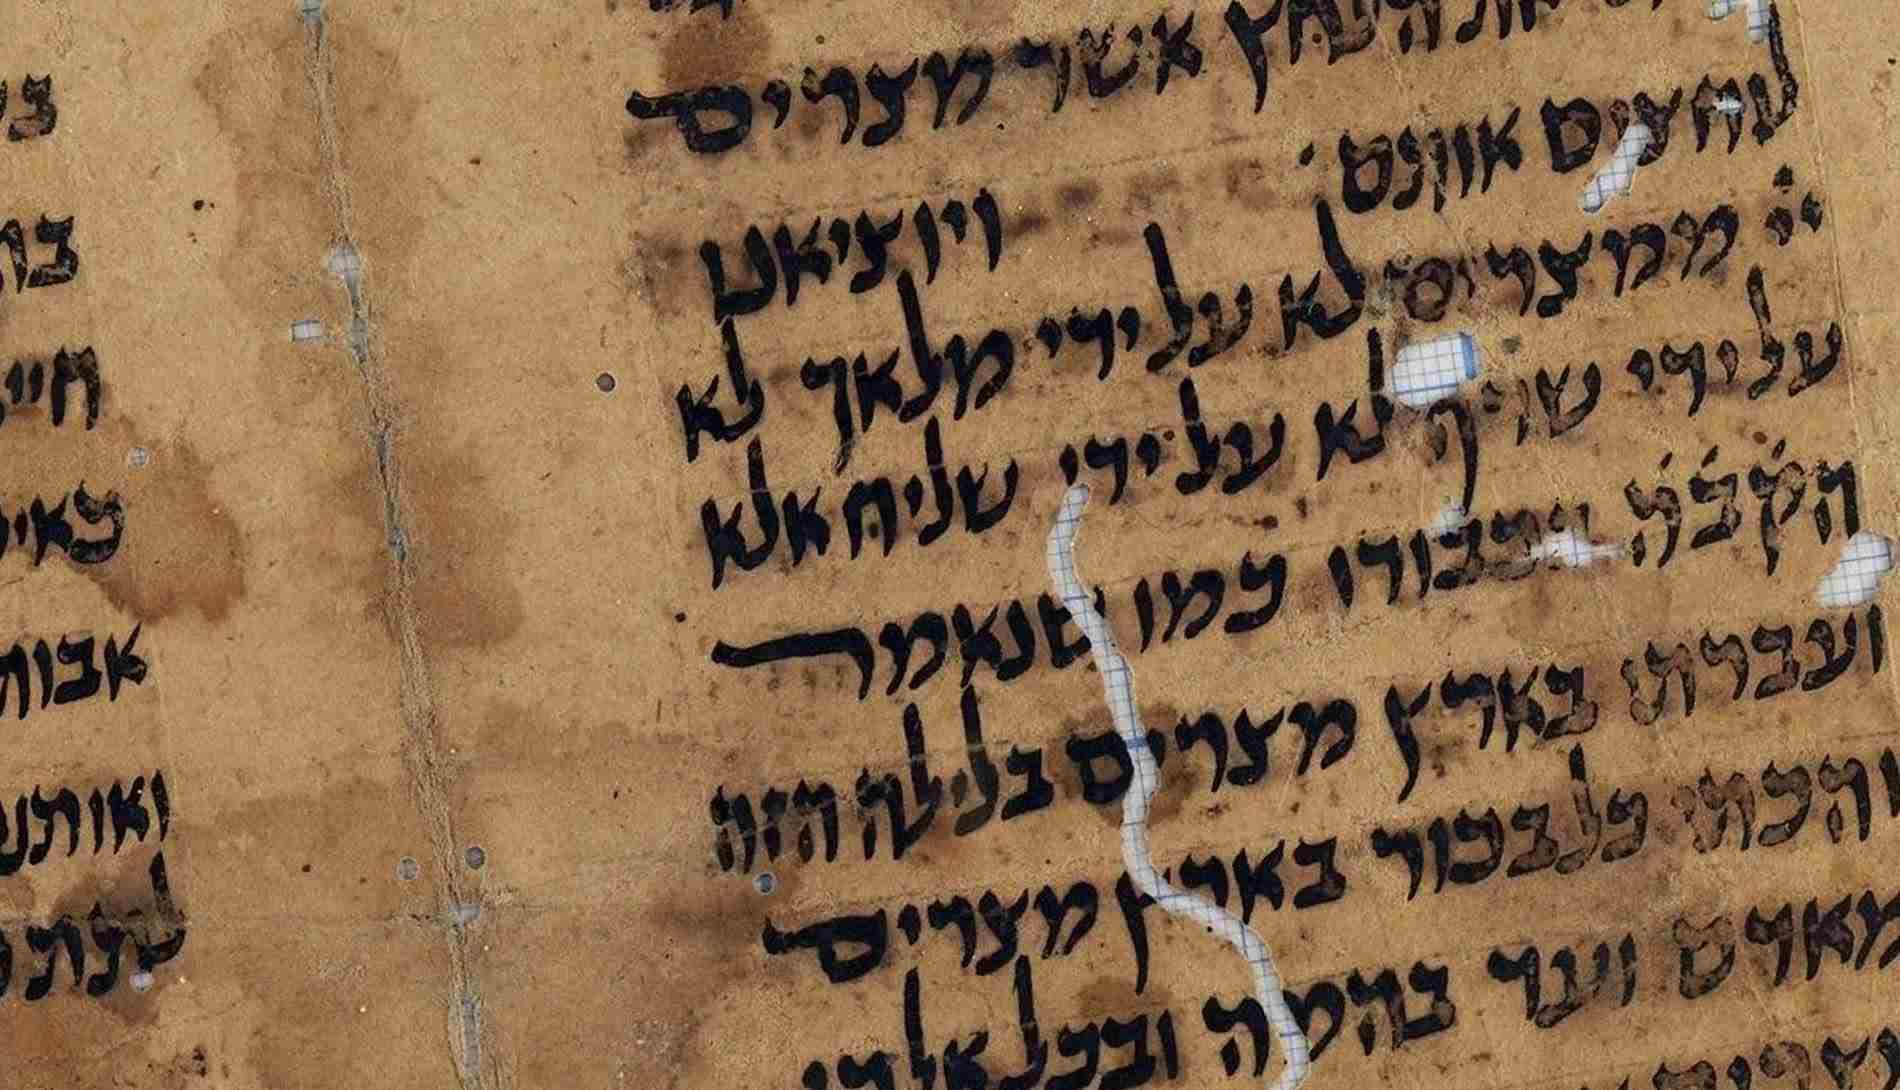 הלחץ אשר מצרים
לחצים אותם ויוציאנו
יי ממצרים לא על ידי מלאך לא
על ידי שרף לא על ידי שליח אלא
הקבה בכבודו כמו שנאמר
ועברתי בארץ מצרים בלילה הזה
והכתי כל בכור בארץ מצרים
מאדם ועד בהמה ובכל אלהי